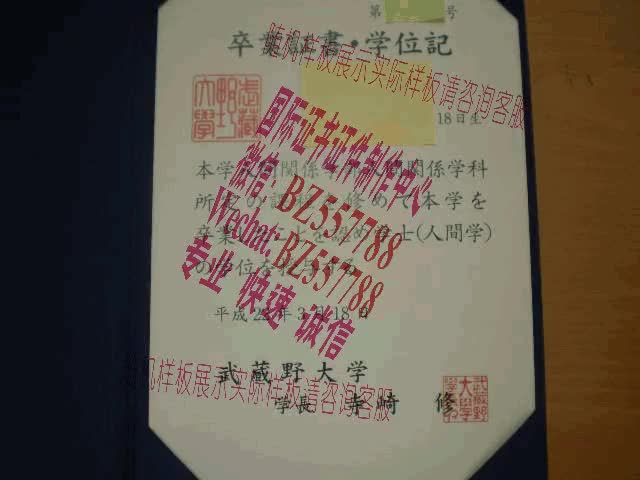 第 号
卒業証書・学位記
随机样板展示实际样板请咨询客服
18日生
国际证书证件制作中心
微信: BZ557788
Wechat:BZ557788
专业 快速 诚信
本学 人間関係学部人間関係学科
所定の課程を修めて本学を
卒業 ことを認め学士(人間学)
の学位を授与する
平成22年3月18日
武蔵野大学
机样板展示实际样板请咨询客服
学長 寺崎 修